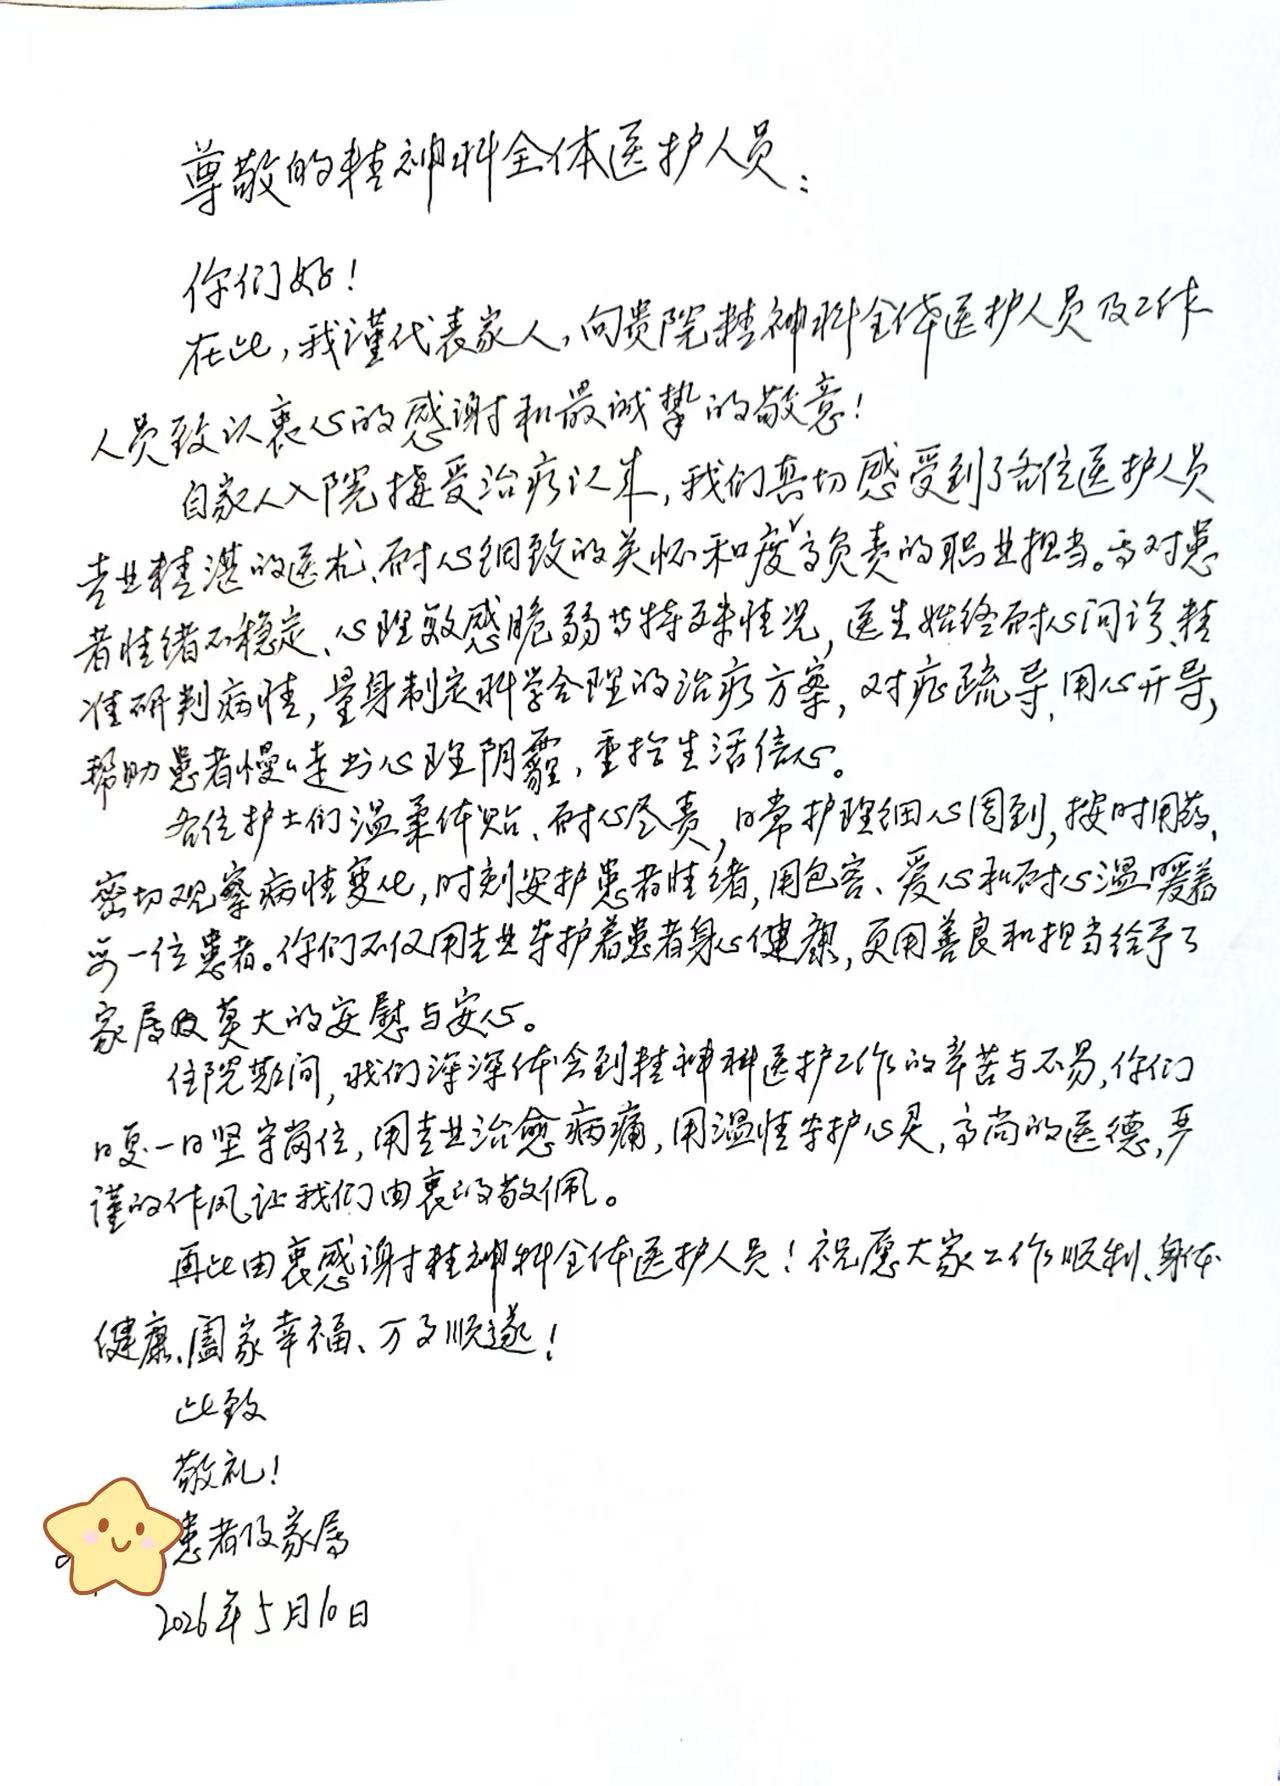 尊敬的精神科全体医护人员：
你们好！
在此，我谨代表家人，向贵院精神科全体医护人员及工作
人员致以衷心的感谢和最诚挚的敬意！
自家人入院接受治疗以来，我们真切感受到了各位医护人员
专业精湛的医术、耐心细致的关怀和高度负责的职业担当。面对患
者情绪不稳定、心理敏感脆弱等特殊情况，医生始终耐心问诊、精
准研判病情，量身制定科学合理的治疗方案，对症疏导、用心开导，
帮助患者慢慢走出心理阴霾，重拾生活信心。
各位护士们温柔体贴、耐心尽责，日常护理细心周到，按时用药、
密切观察病情变化，时刻安护患者情绪，用包容、爱心和耐心温暖着
每一位患者。你们不仅用专业守护着患者身心健康，更用善良和担当给予了
家属及莫大的安慰与安心。
住院期间，我们深深体会到精神科医护工作的辛苦与不易，你们
日复一日坚守岗位，用专业治愈病痛，用温情守护心灵，高尚的医德，严
谨的作风让我们由衷的敬佩。
再此由衷感谢精神科全体医护人员！祝愿大家工作顺利、身体
健康、阖家幸福、万事顺遂！
此致
敬礼！
患者及家属
2026年5月10日